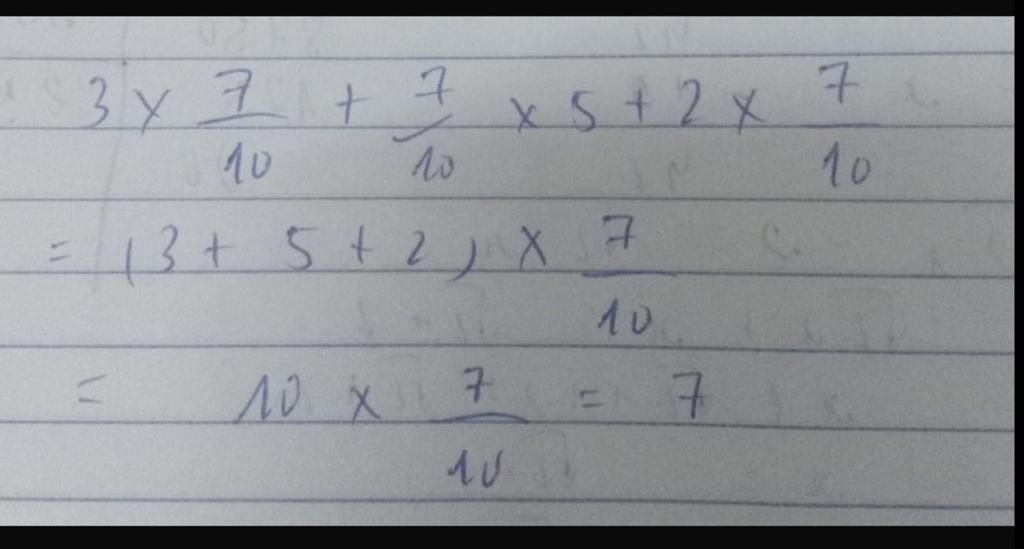 3 × 7/10 + 7/10 × 5 + 2 × 7/10
= (3 + 5 + 2) × 7/10
= 10 × 7/10 = 7